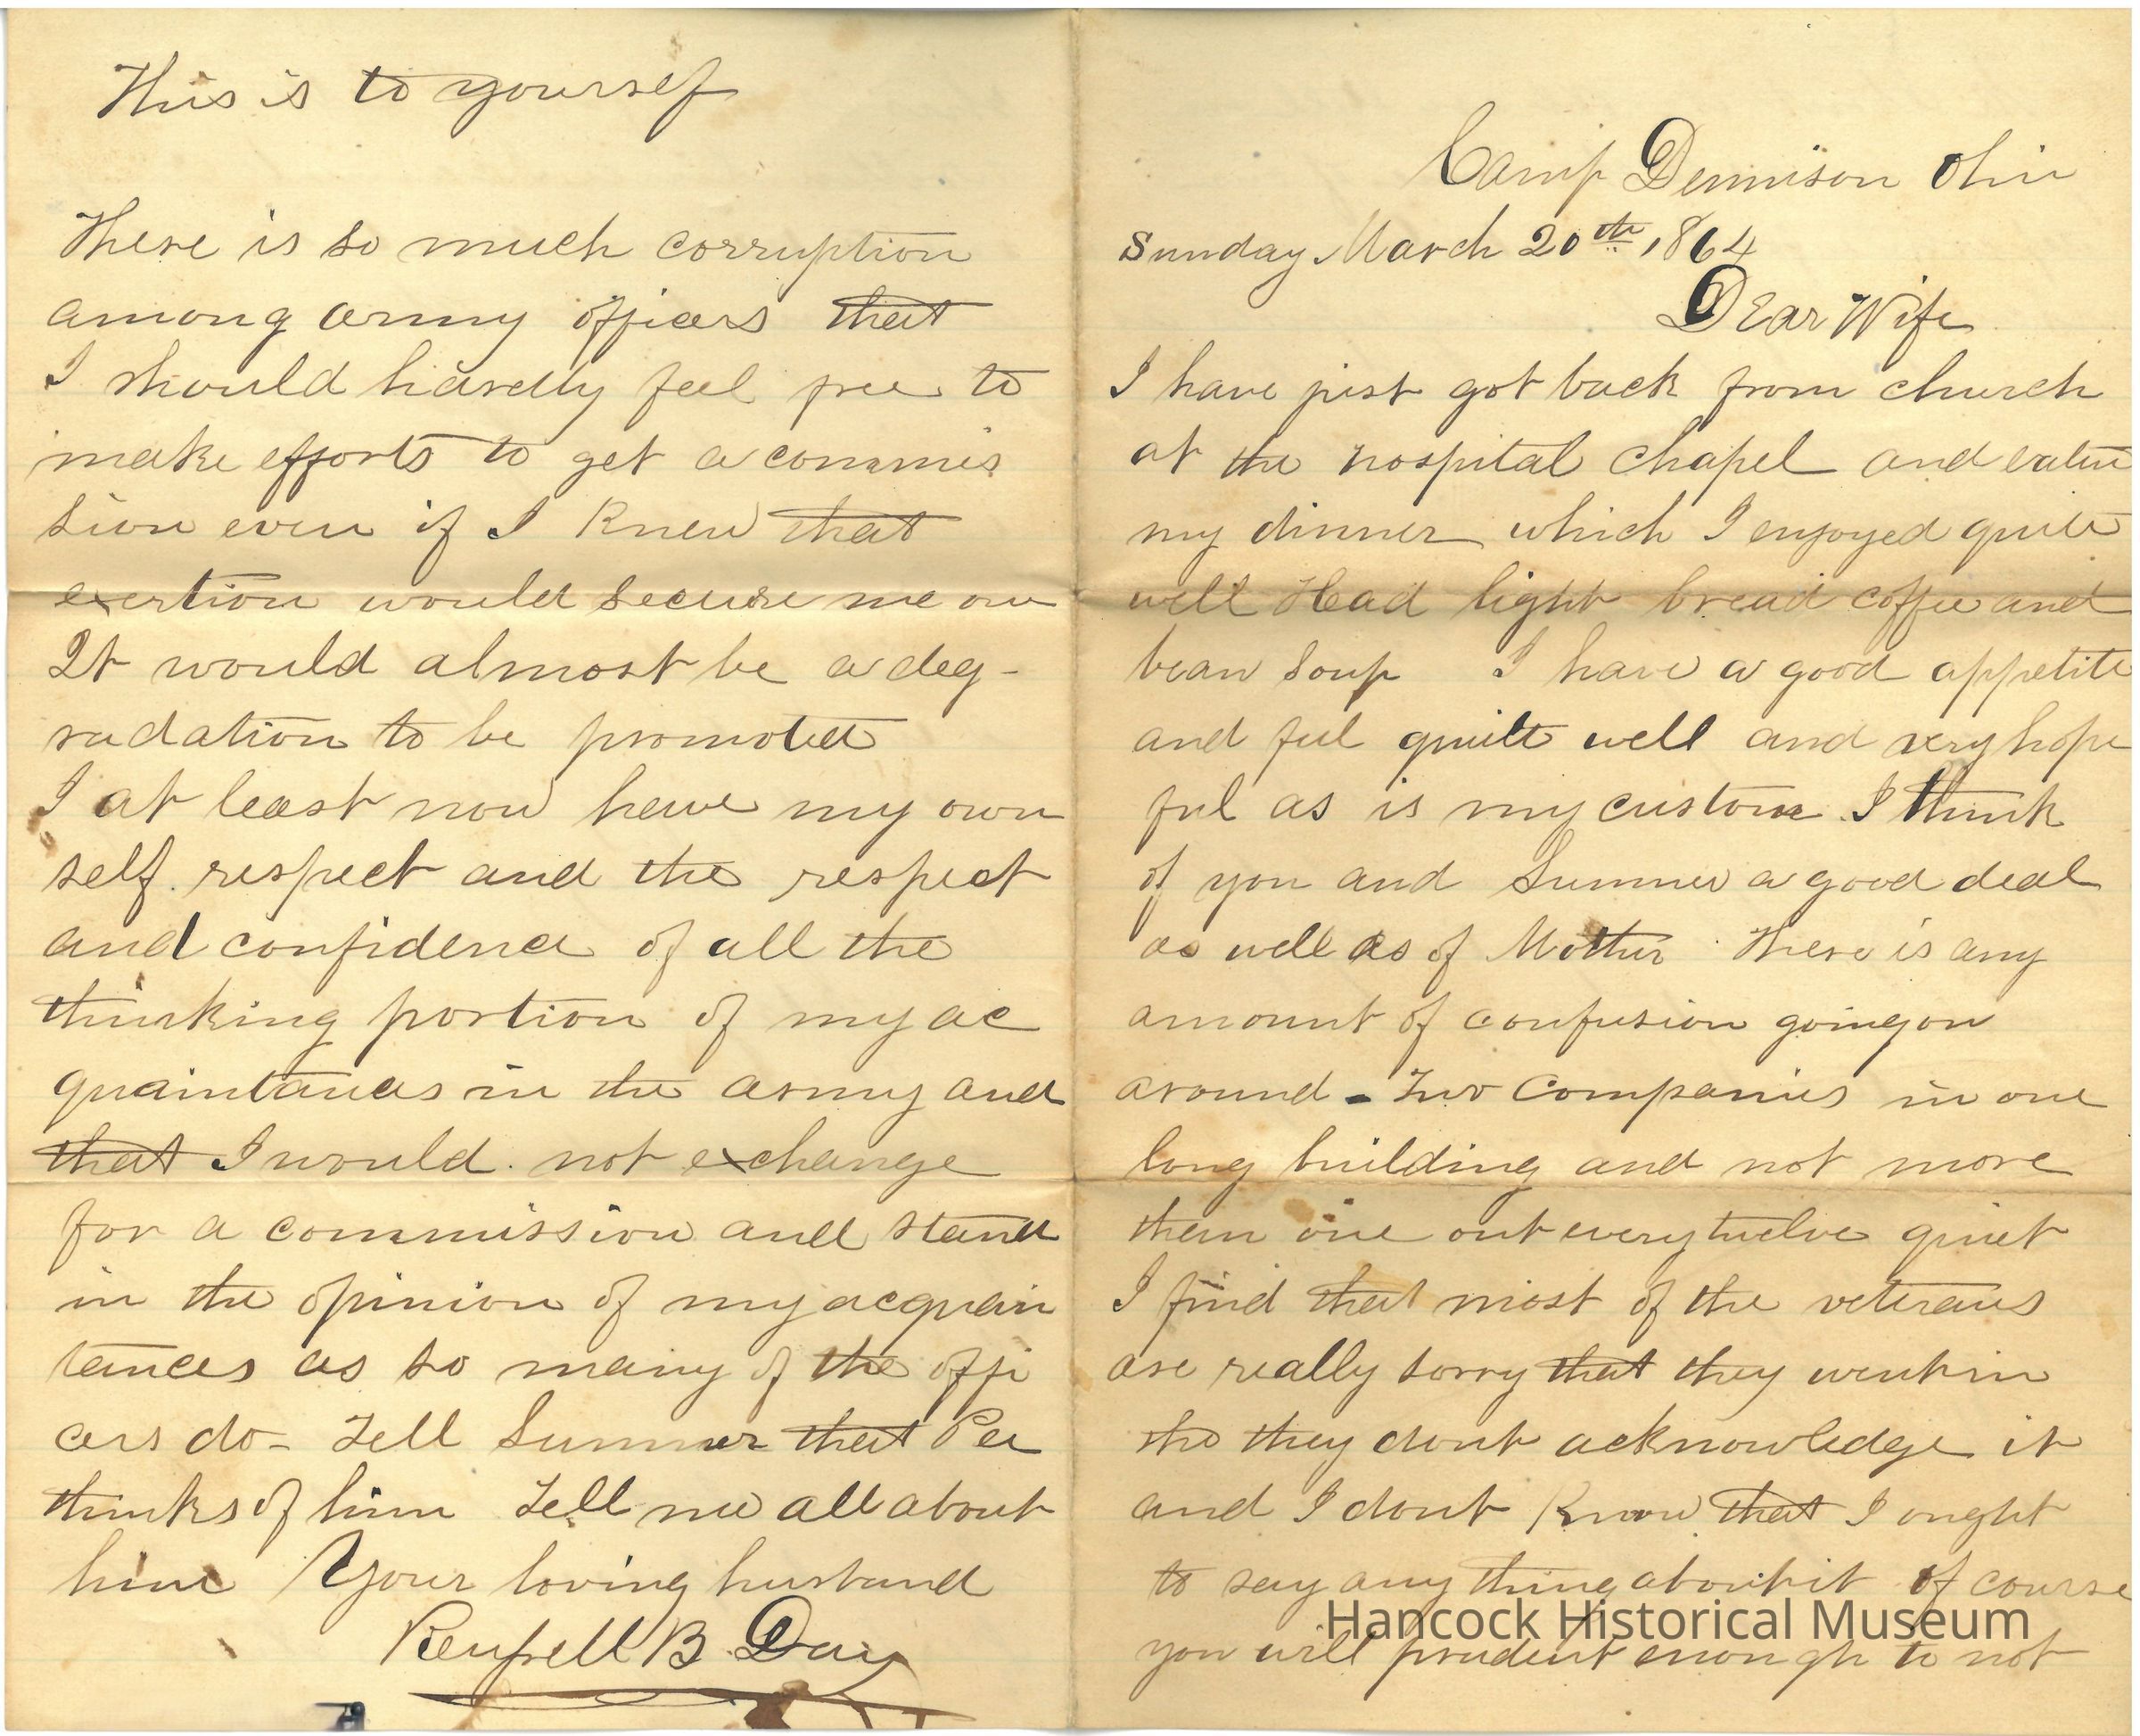 This is to yourself
There is so much corruption
among army officers that
I should hardly feel free to
make efforts to get a commis
sion even if I knew that
exertion would secure me one
It would almost be a deg-
radation to be promoted
I at least now have my own
self. respect and the respect
and confidence of all the
thinking portion of my ac
quaintances in the army and
that I would not exchange
for a commission and stand
in the opinion of my acquain
tances as so many of the offi
cers do - Tell Sumner that Pa
thinks of him Tell me all about
him Your loving husband
B. Day
Camp Dennison Ohio
Sunday March 20th, 1864
Dear Wife
I have just got back from church
at the hospital chapel and eaten
my dinner which I enjoyed quite
well Had light bread coffee and
bean soup I have a good appetite
and feel quite well and very hope
ful as is my custom I think
of you and Sumner a good deal
as well as of Mother There is any
amount of confusion going on
around - Two Companies in one
long building and not more
then one out every twelve quiet
I find that most of the veterans
are really sorry that they went in
tho they dont acknowledge it
and I dont know that I ought
to say any thing about it of course
you will prudent enough to not
Hancock Historical Museum